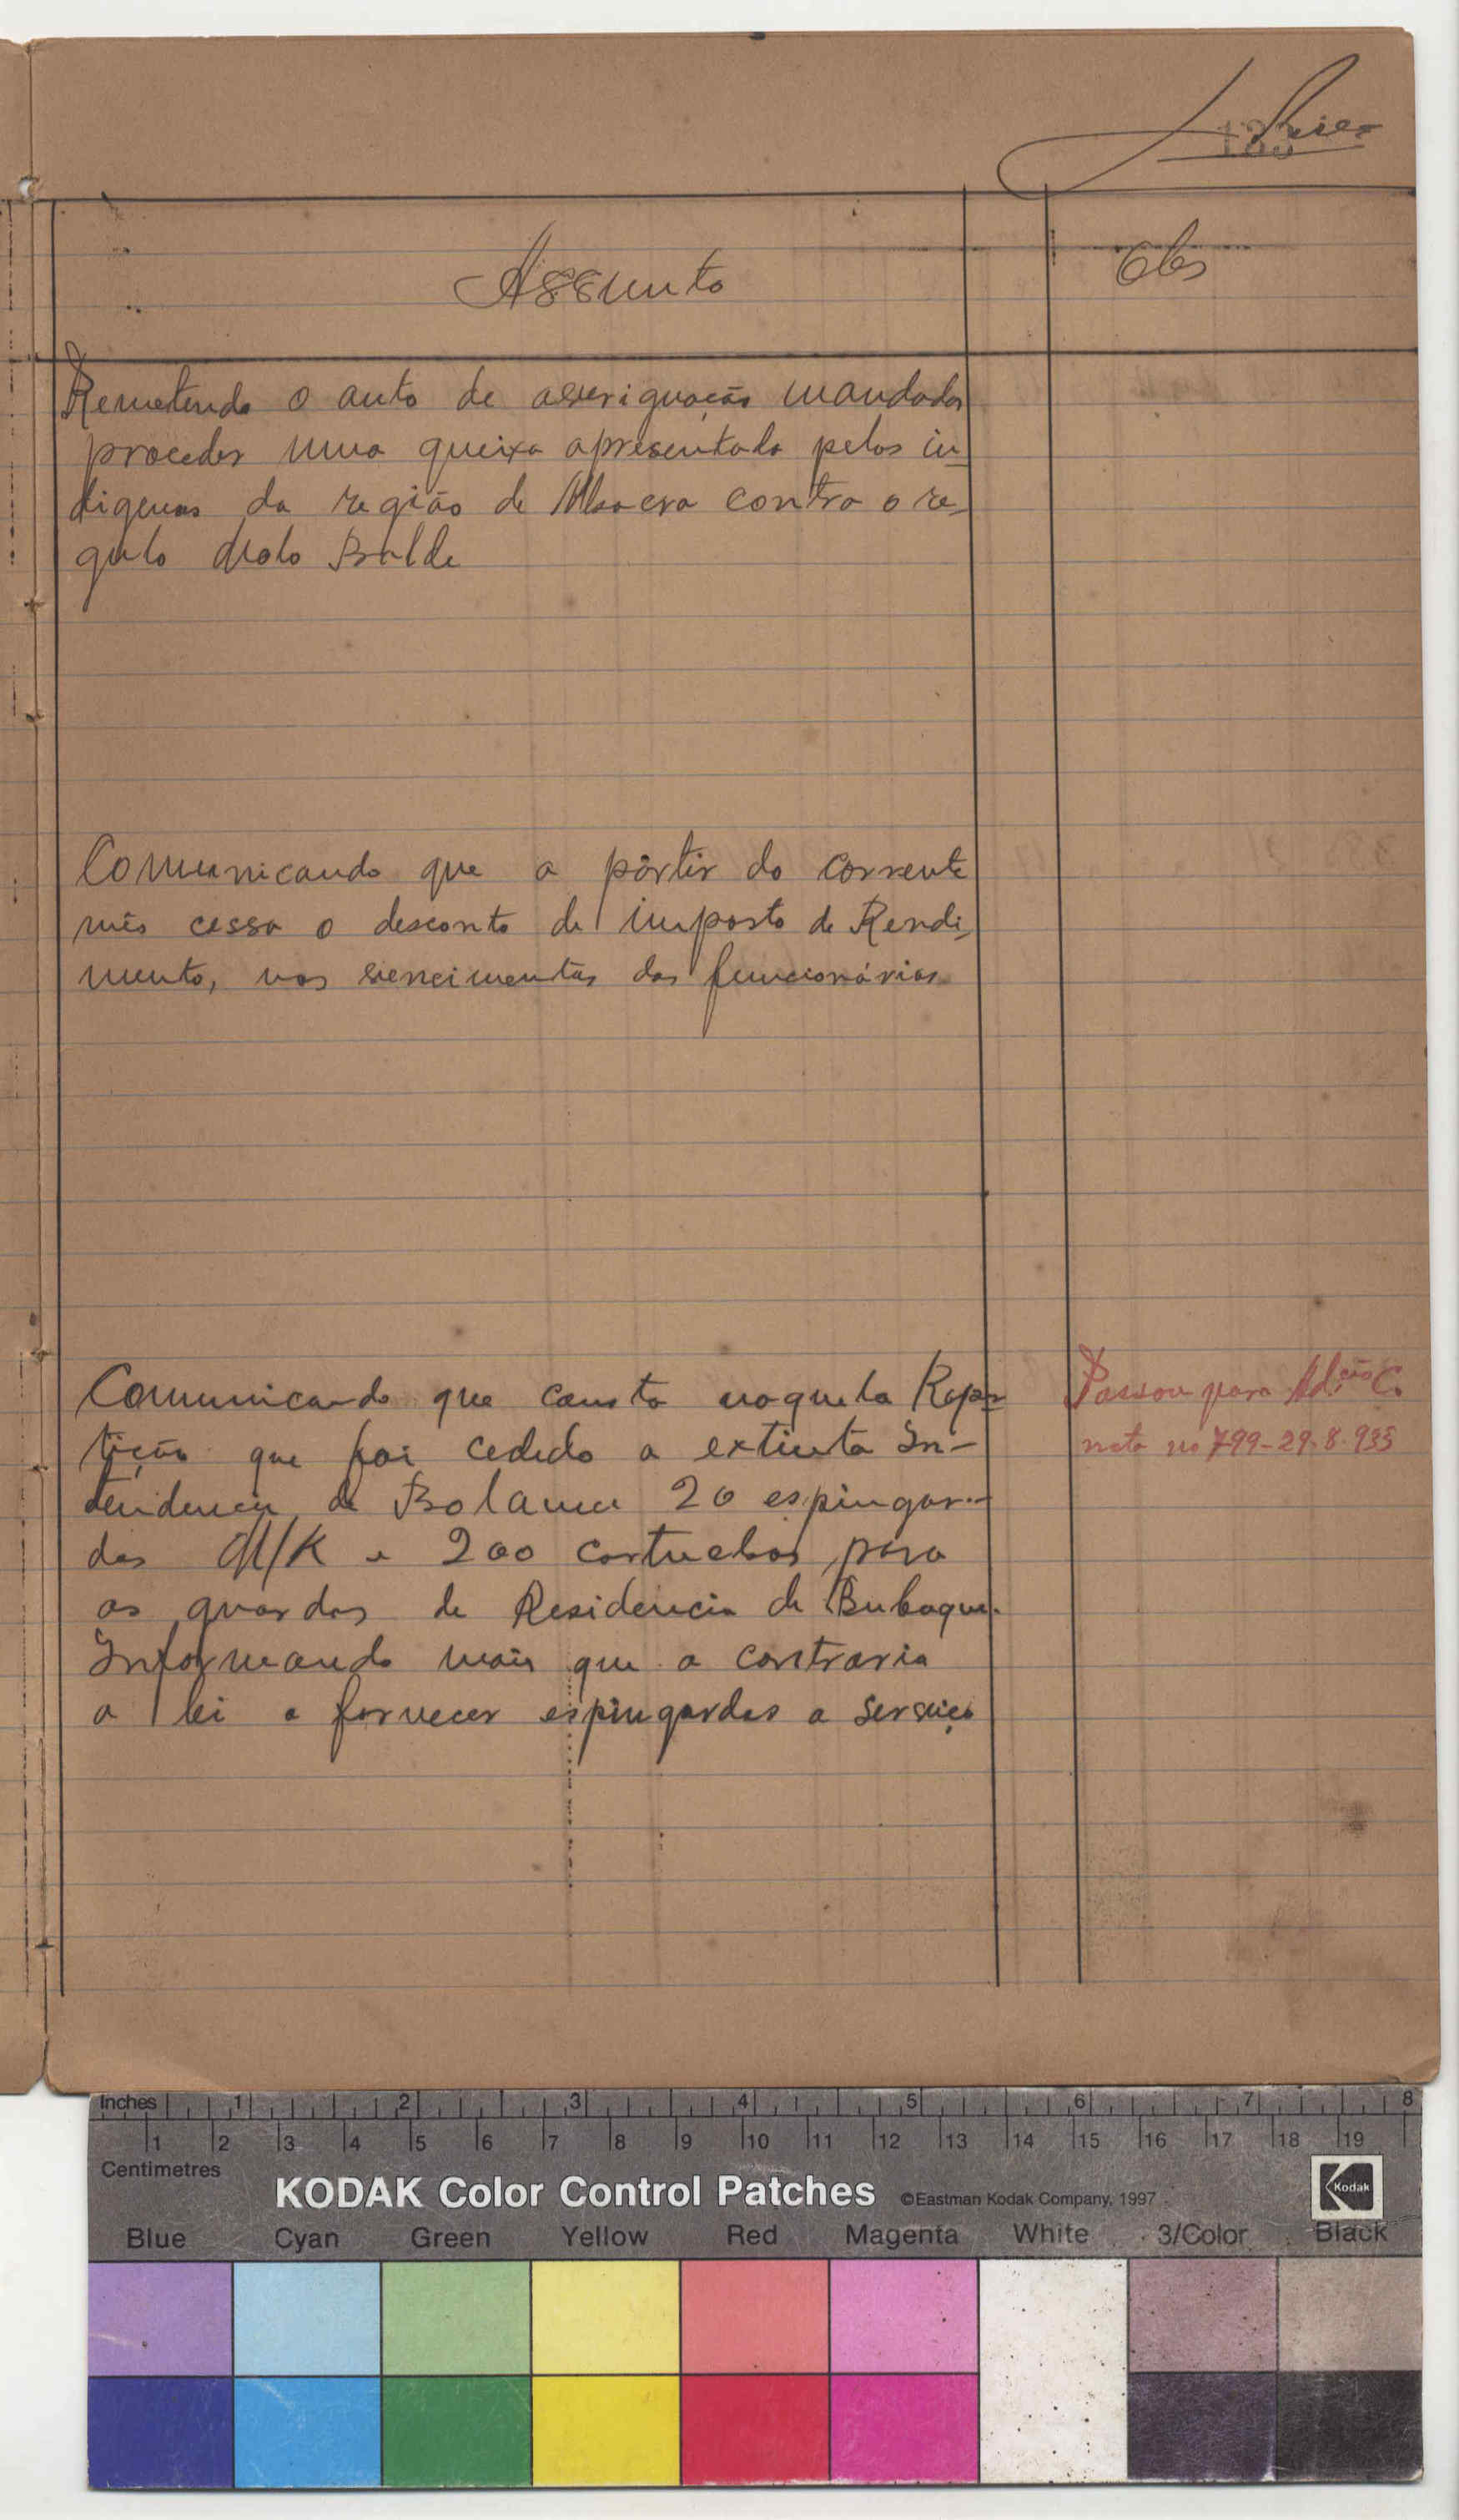 183
Assunto
Obs
Remetendo o auto de averiguação mandado
proceder uma queixa apresentada pelos in-
digenas da região de contra o re-
gulo Balde
Comunicando que a pártir do corrente
mês cessa o desconto de imposto de Rendi-
mento, nos vencimentos dos funcionários
Comunicando que consta naquela Repar-
tição que foi cedido a extinta In-
tendencia de Bolama 20 espingar-
das M/K e 200 cartuchos para
os guardas de Residencia de Bubaque.
Informando mais que a contraria
a lei a fornecer espingardas a serviço
Passou para Ad.ção C.
nota no 799-29-8-935
Inches 1 2 3 4 5 6 7 8
1 2 3 4 5 6 7 8 9 10 11 12 13 14 15 16 17 18 19
Centimetres
KODAK Color Control Patches ©Eastman Kodak Company, 1997 Kodak
Blue Cyan Green Yellow Red Magenta White 3/Color Black